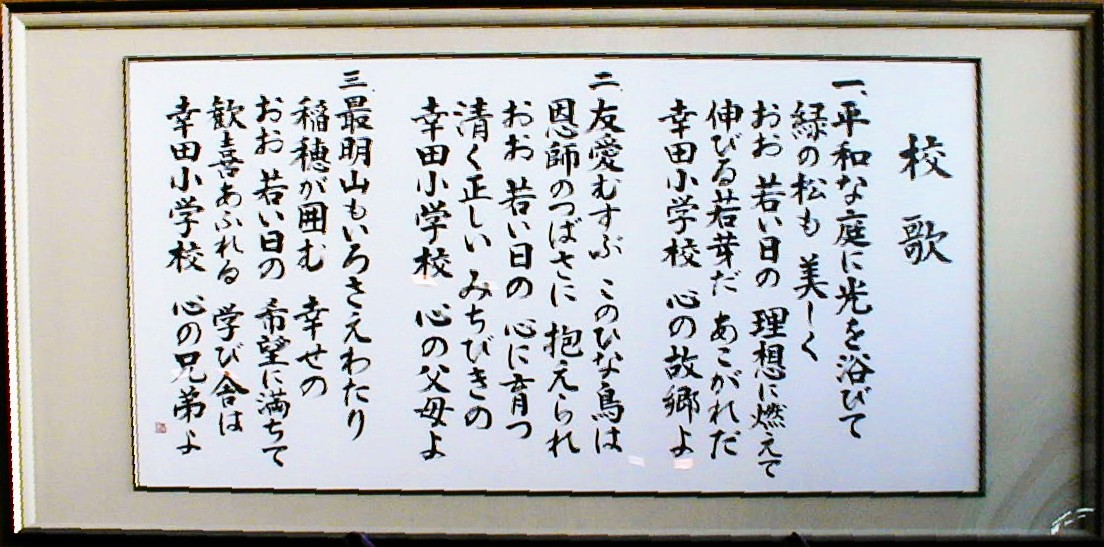 校歌
一、平和な庭に光を浴びて
緑の松も 美しく
おお 若い日の 理想に燃えて
伸びる若芽だ あこがれだ
幸田小学校 心の故郷よ
二、友愛むすぶ このひな鳥は
恩師のつばさに 抱えられ
おお 若い日の 心に育つ
清く正しい みちびきの
幸田小学校 心の父母よ
三、最明山もいろさえわたり
稲穂が囲む 幸せの
おお 若い日の 希望に満ちて
歓喜あふれる 学び舎は
幸田小学校 心の兄弟よ